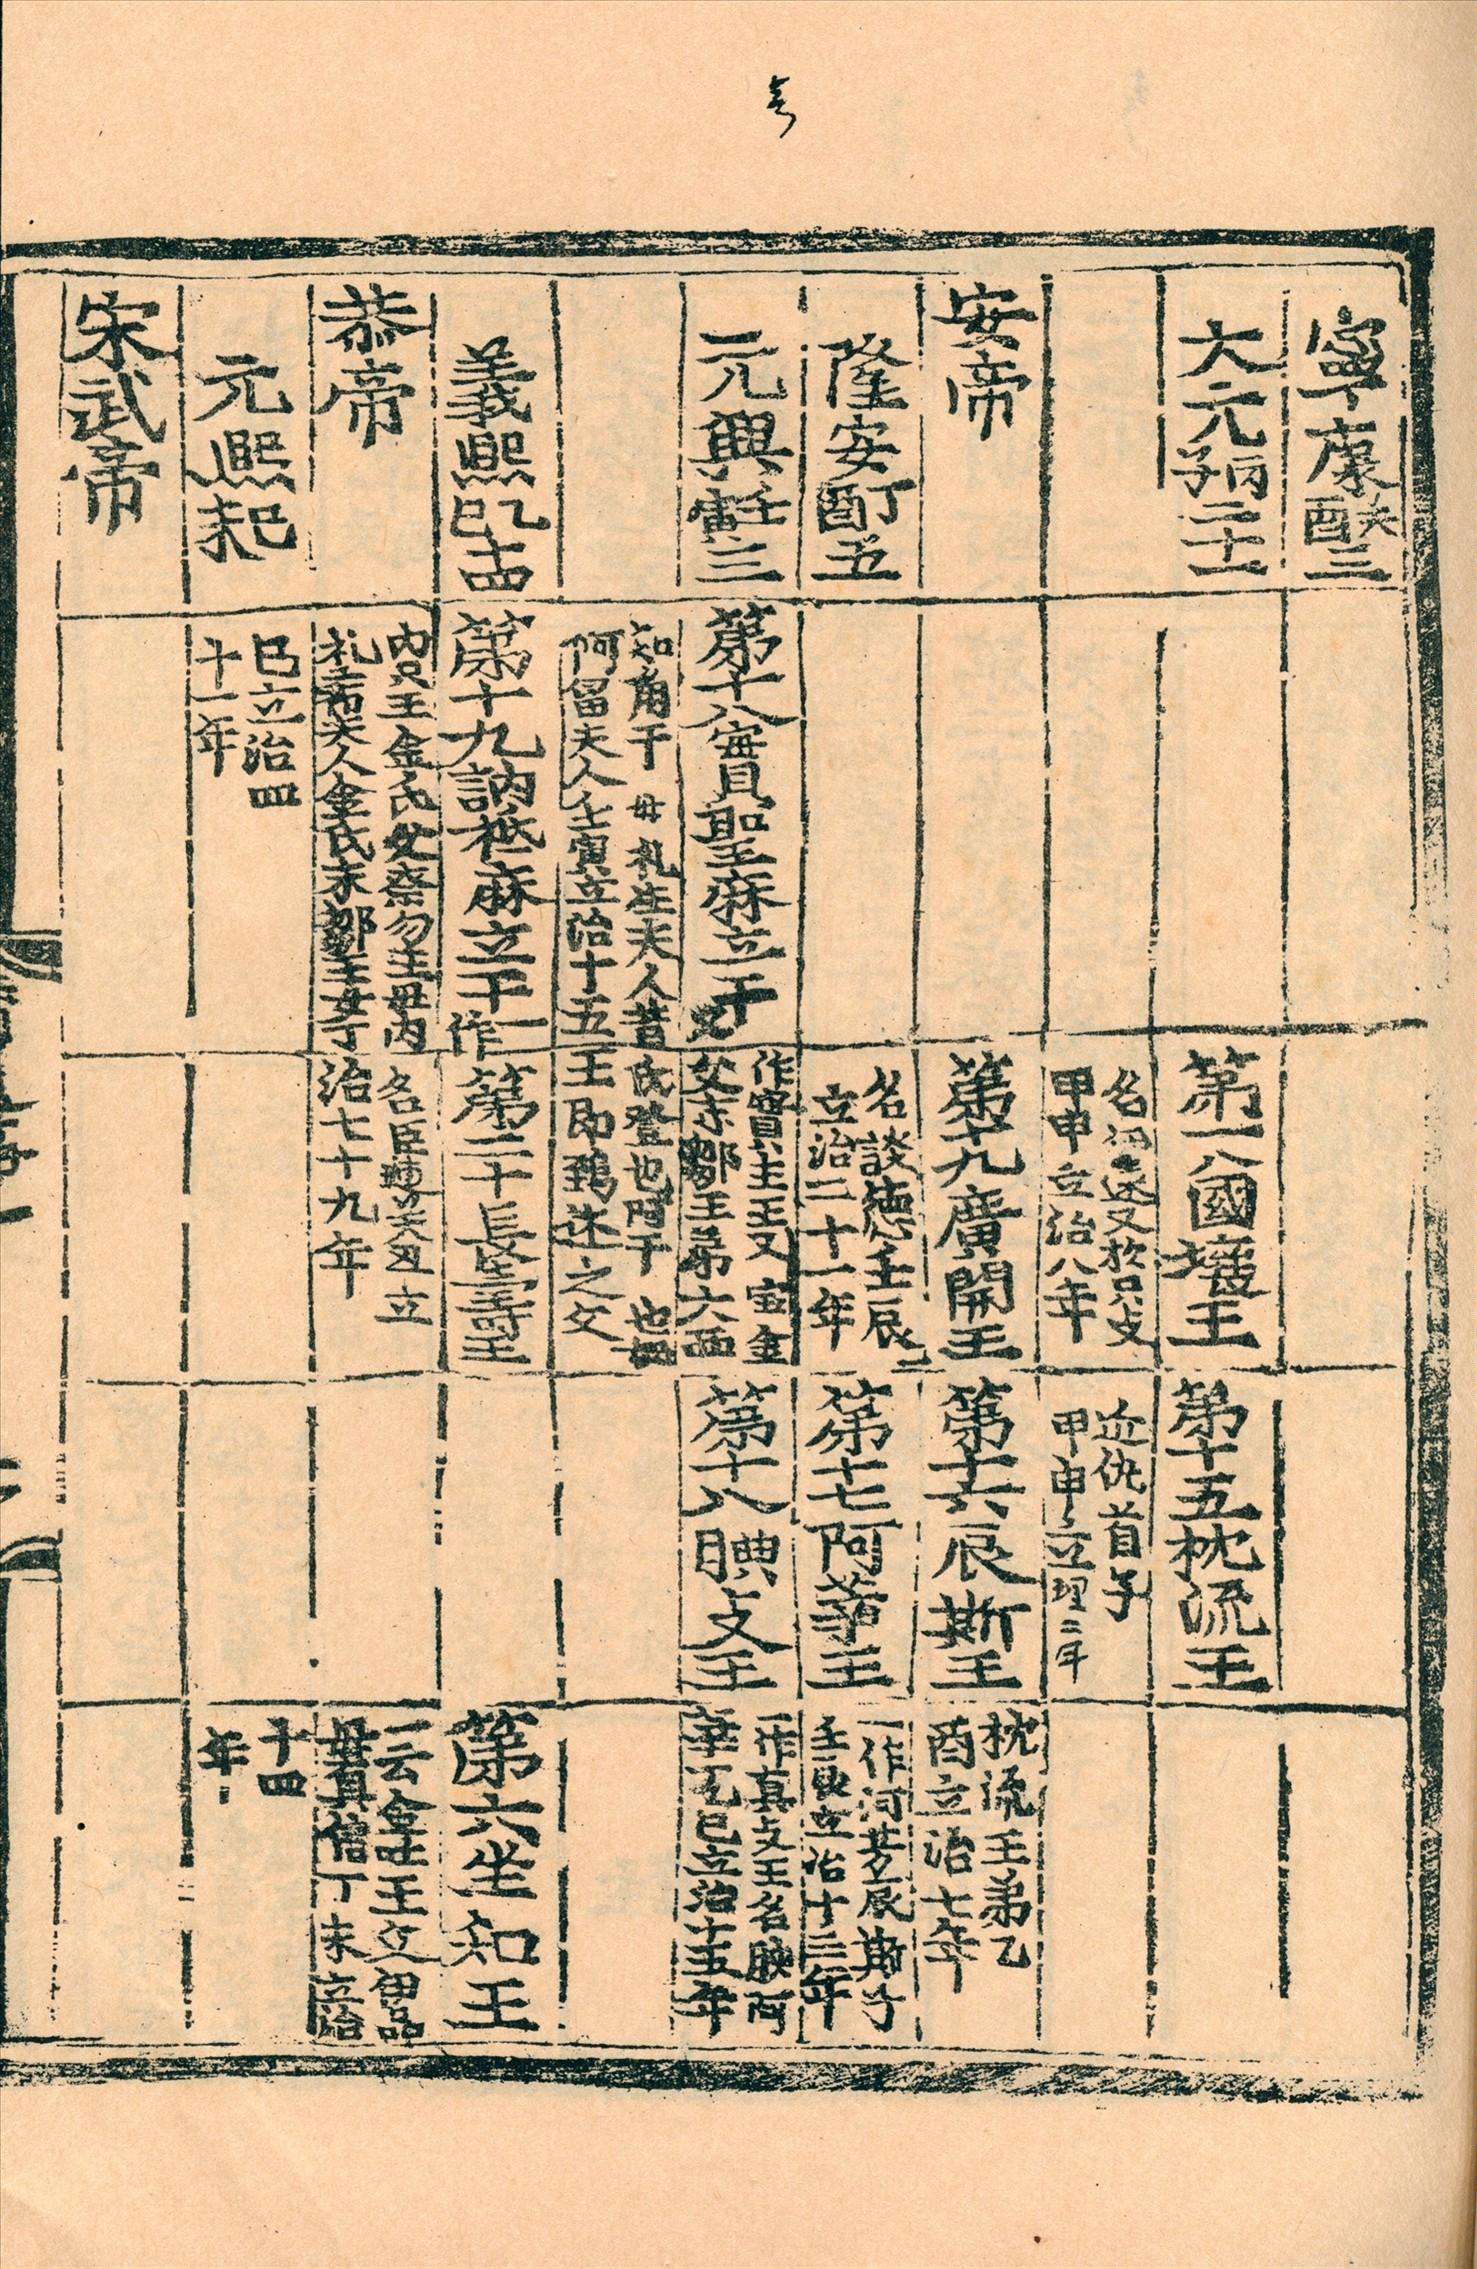 寧康癸酉三
大元丙子二十一
第十八國壤王
第十五枕流王
名
又於只支
甲申立治八年
近仇首子
甲申立理二年
安帝
第十九廣開王
第十六辰斯王
枕流王弟乙
酉立治七年
隆安丁酉五
名談德壬辰
立治二十一年
第十七阿莘王
一作阿芳辰斯子
壬辰立治十三年
元興壬寅三
第十八實聖麻立干
作實主王又宝金
父未鄒王弟大西
第十八腆支王
一作真支王名腆阿
莘子乙巳立治十五年
知角干 母礼生夫人昔
氏登也阿干 也妃
阿留夫人壬寅立治十五
王即鵄述之父
義熙乙巳十四
第十九訥祗麻立干
一作
第二十長壽王
第六坐知王
恭帝
內只王金氏父奈勿王母內
礼希夫人金氏未鄒王女丁
名臣連癸丑立
治七十九年
一云金叱王父伊品
母貞信丁未立治
元熙己未
巳立治四
十一年
十四
年
宋武帝